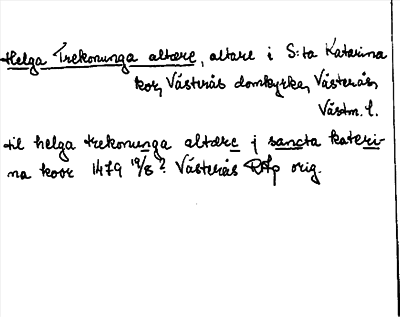 Helga Trekonunga altare, altare i S:ta Katarina
kor, Västerås domkyrka, Västerås,
Västm. l.
til helga trekonunga altære j sancta kateri-
na koor 1479 19/8? Västerås RAp orig.